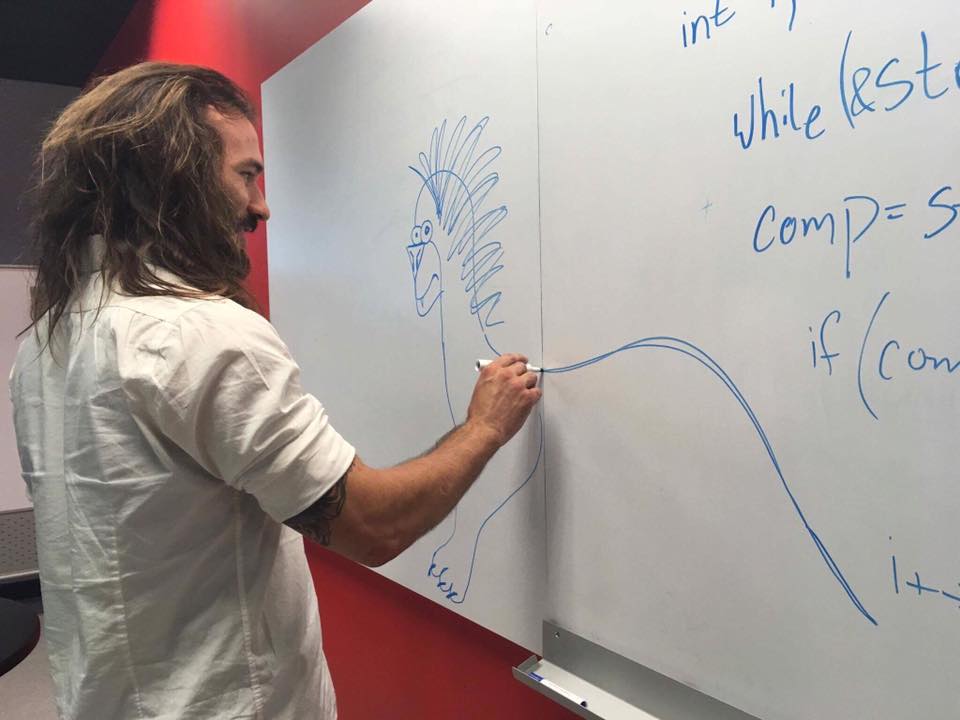 int
while (&st
comp = s
if (com
i++